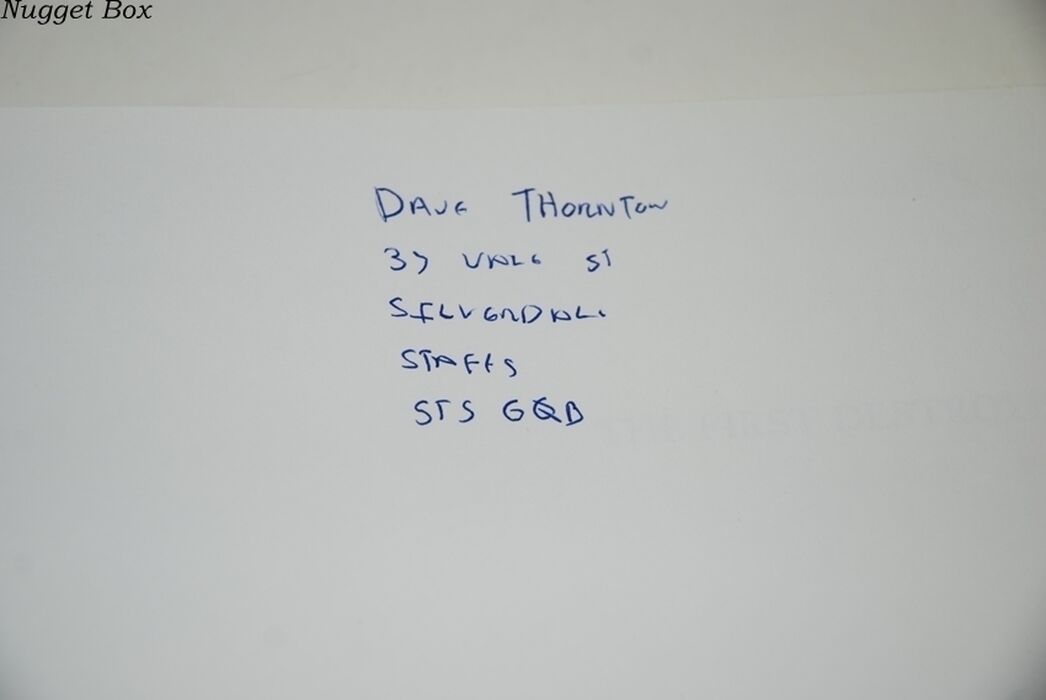 Nugget Box
DAVE THORNTON
37 VALE ST
SILVERDALE
STAFFS
ST5 6QB